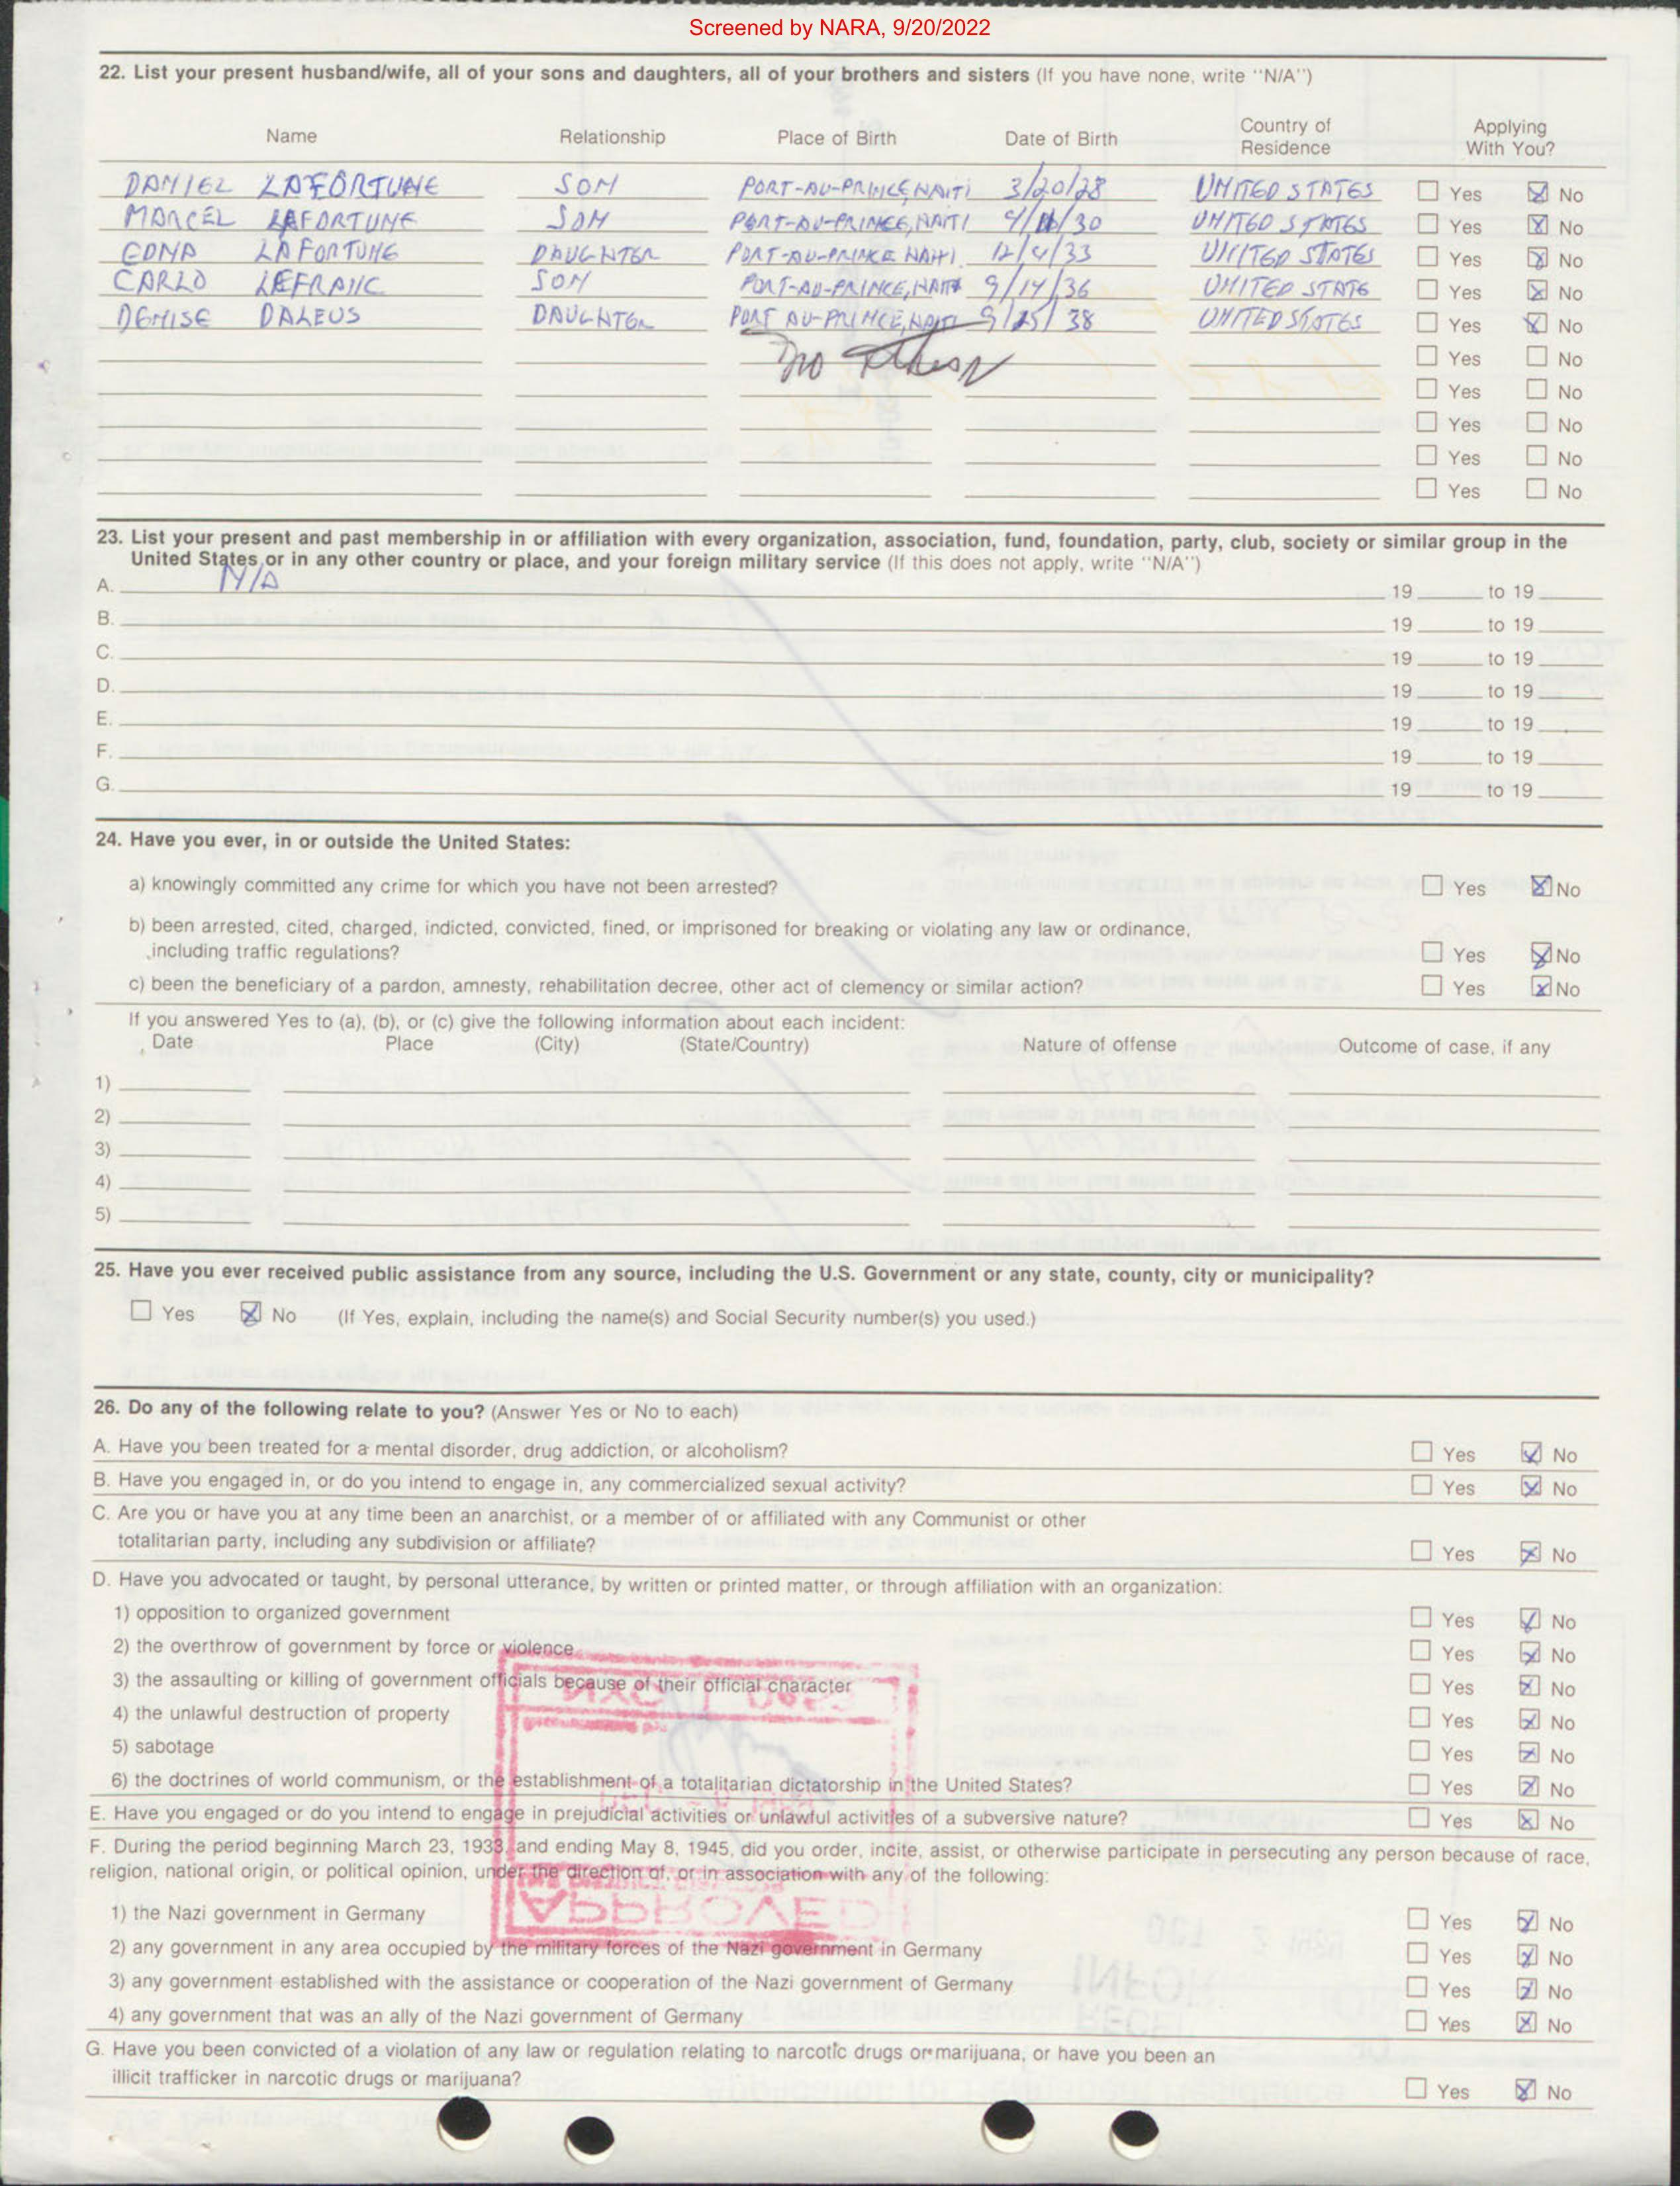 Screened by NARA, 9/20/2022
22. List your present husband/wife, all of your sons and daughters, all of your brothers and sisters (If you have none, write "N/A")
Name Relationship Place of Birth Date of Birth Country of Residence Applying With You?
DANIEL LAFORTUNE SON PORT-AU-PRINCE, HAITI 3/20/28 UNITED STATES Yes No
MARCEL LAFORTUNE SON PORT-AU-PRINCE, HAITI UNITED STATES Yes No
EDNA LAFORTUNE DAUGHTER PORT-AU-PRINCE HAITI 12/4/33 UNITED STATES Yes No
CARLO LEFRANC SON PORT-AU-PRINCE, HAITI 9/14/36 UNITED STATE Yes No
DENISE DALEUS DAUGHTER PORT AU-PRINCE, HAITI 9/25/38 UNITED STATES Yes No
no others Yes No
Yes No
Yes No
Yes No
Yes No
23. List your present and past membership in or affiliation with every organization, association, fund, foundation, party, club, society or similar group in the
United States or in any other country or place, and your foreign military service (If this does not apply, write "N/A")
A. N/A 19 to 19
B. 19 to 19
C. 19 to 19
D. 19 to 19
E. 19 to 19
F. 19 to 19
G. 19 to 19
24. Have you ever, in or outside the United States:
a) knowingly committed any crime for which you have not been arrested? Yes No
b) been arrested, cited, charged, indicted, convicted, fined, or imprisoned for breaking or violating any law or ordinance,
including traffic regulations? Yes No
c) been the beneficiary of a pardon, amnesty, rehabilitation decree, other act of clemency or similar action? Yes No
If you answered Yes to (a), (b), or (c) give the following information about each incident:
Date Place (City) (State/Country) Nature of offense Outcome of case, if any
1)
2)
3)
4)
5)
25. Have you ever received public assistance from any source, including the U.S. Government or any state, county, city or municipality?
Yes No (If Yes, explain, including the name(s) and Social Security number(s) you used.)
26. Do any of the following relate to you? (Answer Yes or No to each)
A. Have you been treated for a mental disorder, drug addiction, or alcoholism? Yes No
B. Have you engaged in, or do you intend to engage in, any commercialized sexual activity? Yes No
C. Are you or have you at any time been an anarchist, or a member of or affiliated with any Communist or other
totalitarian party, including any subdivision or affiliate? Yes No
D. Have you advocated or taught, by personal utterance, by written or printed matter, or through affiliation with an organization:
1) opposition to organized government Yes No
2) the overthrow of government by force or violence Yes No
3) the assaulting or killing of government officials because of their official character Yes No
4) the unlawful destruction of property Yes No
5) sabotage Yes No
6) the doctrines of world communism, or the establishment of a totalitarian dictatorship in the United States? Yes No
E. Have you engaged or do you intend to engage in prejudicial activities or unlawful activities of a subversive nature? Yes No
F. During the period beginning March 23, 1933, and ending May 8, 1945, did you order, incite, assist, or otherwise participate in persecuting any person because of race,
religion, national origin, or political opinion, under the direction of, or in association with any of the following:
APPROVED
1) the Nazi government in Germany Yes No
2) any government in any area occupied by the military forces of the Nazi government in Germany Yes No
3) any government established with the assistance or cooperation of the Nazi government of Germany Yes No
4) any government that was an ally of the Nazi government of Germany Yes No
G. Have you been convicted of a violation of any law or regulation relating to narcotic drugs or marijuana, or have you been an
illicit trafficker in narcotic drugs or marijuana? Yes No